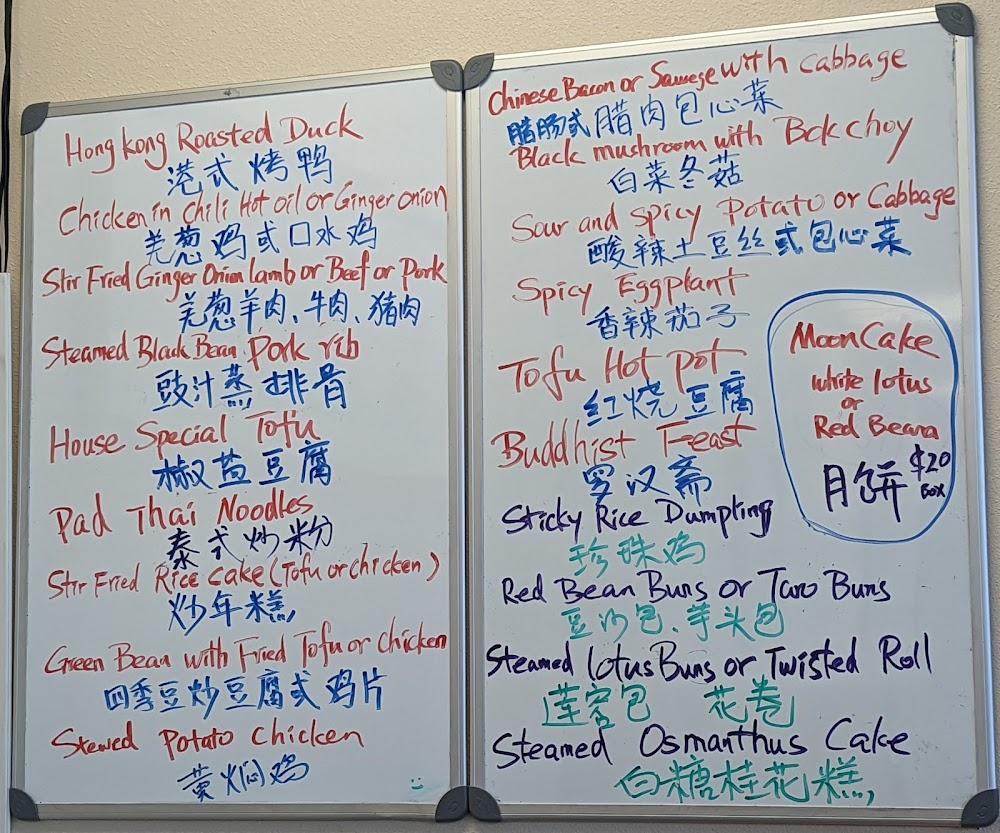 Hong kong Roasted Duck
港式烤鸭
Chicken in chili Hot oil or Ginger onion
羌葱鸡或口水鸡
Stir Fried Ginger Onion lamb or Beef or Pork
羌葱羊肉、牛肉、猪肉
Steamed Black Bean Pork rib
豉汁蒸排骨
House Special Tofu
椒盐豆腐
Pad Thai Noodles
泰式炒粉
Stir Fried Rice cake (Tofu or chicken)
炒年糕
Green Bean with Fried Tofu or chicken
四季豆炒豆腐或鸡片
Stewed Potato chicken
黄焖鸡
Chinese Bacon or Sausege with cabbage
腊肠或腊肉包心菜
Black mushroom with Bok choy
白菜冬菇
Sour and spicy Potato or Cabbage
酸辣土豆丝或包心菜
Spicy Eggplant
香辣茄子
Tofu Hot pot
红烧豆腐
Buddhist Feast
罗汉斋
Sticky Rice Dumpling
珍珠鸡
Red Bean Buns or Taro Buns
豆沙包、芋头包
Steamed lotus Buns or Twisted Roll
莲容包 花卷
Steamed Osmanthus Cake
白糖桂花糕
MoonCake
white lotus
or
Red Beana
月饼 $20
BOX